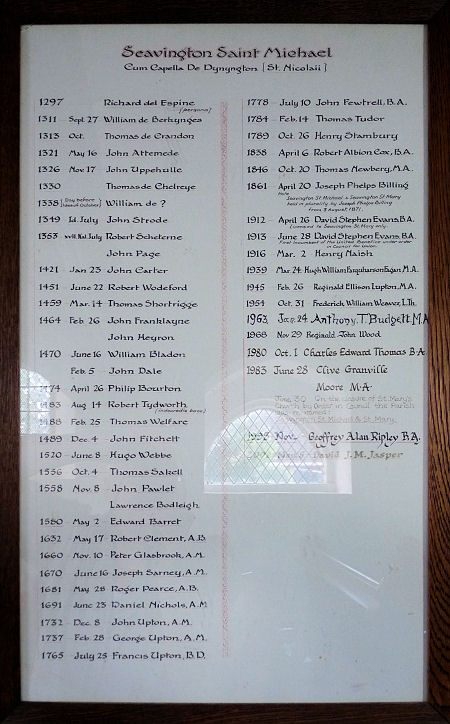 Seavington Saint Michael
Cum Capella De Dynyngton [St. Nicolaii]
1297 Richard del Espine
[persona]
1311 Sept. 27 William de Berkynges
1313 Oct. Thomas de Crandon
1321 May 16 John Attemede
1326 Nov 17 John Uppehulle
1330 Thomas de Chelreye
1338 William de ?
1349 Id. July John Strode
1363 xvii. Kal. July Robert Scheterne
John Page
1421 Jan 23 John Carter
1451 June 22 Robert Wodeford
1459 Mar. 14 Thomas Shortrigge
1464 Feb. 26 John Franklayne
John Heyron
1470 June 16 William Bladon
Feb. 5 John Dale
1474 April 26 Philip Bourton
1483 Aug 14 Robert Tydworth
1488 Feb. 25 Thomas Welfare
1489 Dec. 4 John Fitchett
1520 June 8 Hugo Webbe
1556 Oct. 4 Thomas Sakell
1558 Nov. 8 John Pawlet
Lawrence Bodleigh
1580 May 2 Edward Barret
1632 May 17 Robert Clement, A.B.
1660 Nov. 10 Peter Glasbrook, A.M.
1670 June 16 Joseph Sarney, A.M.
1681 May 28 Roger Pearce, A.B.
1691 June 23 Daniel Nichols, A.M.
1732 Dec. 8 John Upton, A.M.
1737 Feb. 28 George Upton, A.M.
1765 July 25 Francis Upton, B.D.
1778 July 10 John Fewtrell, B.A.
1784 Feb. 14 Thomas Tudor
1789 Oct. 26 Henry Stambury
1838 April 6 Robert Albion Cox, B.A.
1846 Oct. 20 Thomas Newberg, M.A.
1861 April 20 Joseph Phelps Billing
Note
Seavington St. Michael & Seavington St. Mary
held in plurality by Joseph Phelps Billing
from 3 August, 1871.
1912 April 26 David Stephen Evans, B.A.
[Licensed to Seavington St. Mary only.
1913 June 28 David Stephen Evans, B.A.
First incumbent of the United Benefice under order
in Council for union.
1916 Mar. 2 Henry Naish
1939 Mar. 24 Hugh William Farquharson Fagan, M.A.
1945 Feb. 26 Reginald Ellison Lupton, M.A.
1954 Oct. 31 Frederick William Weaver, L.Th.
1963 Jan. 24 Anthony. T. Budgett, M.A
1968 Nov 29 Reginald John Wood
1980 Oct. 1 Charles Edward Thomas B.A.
1983 June 28 Clive Granville
Moore M.A.
June 30 On the closure of St. Mary's
Church by Order in Council the Parish
St. Michael & St. Mary.
Nov. Geoffrey Alan Ripley B.A.
David J. M. Jasper